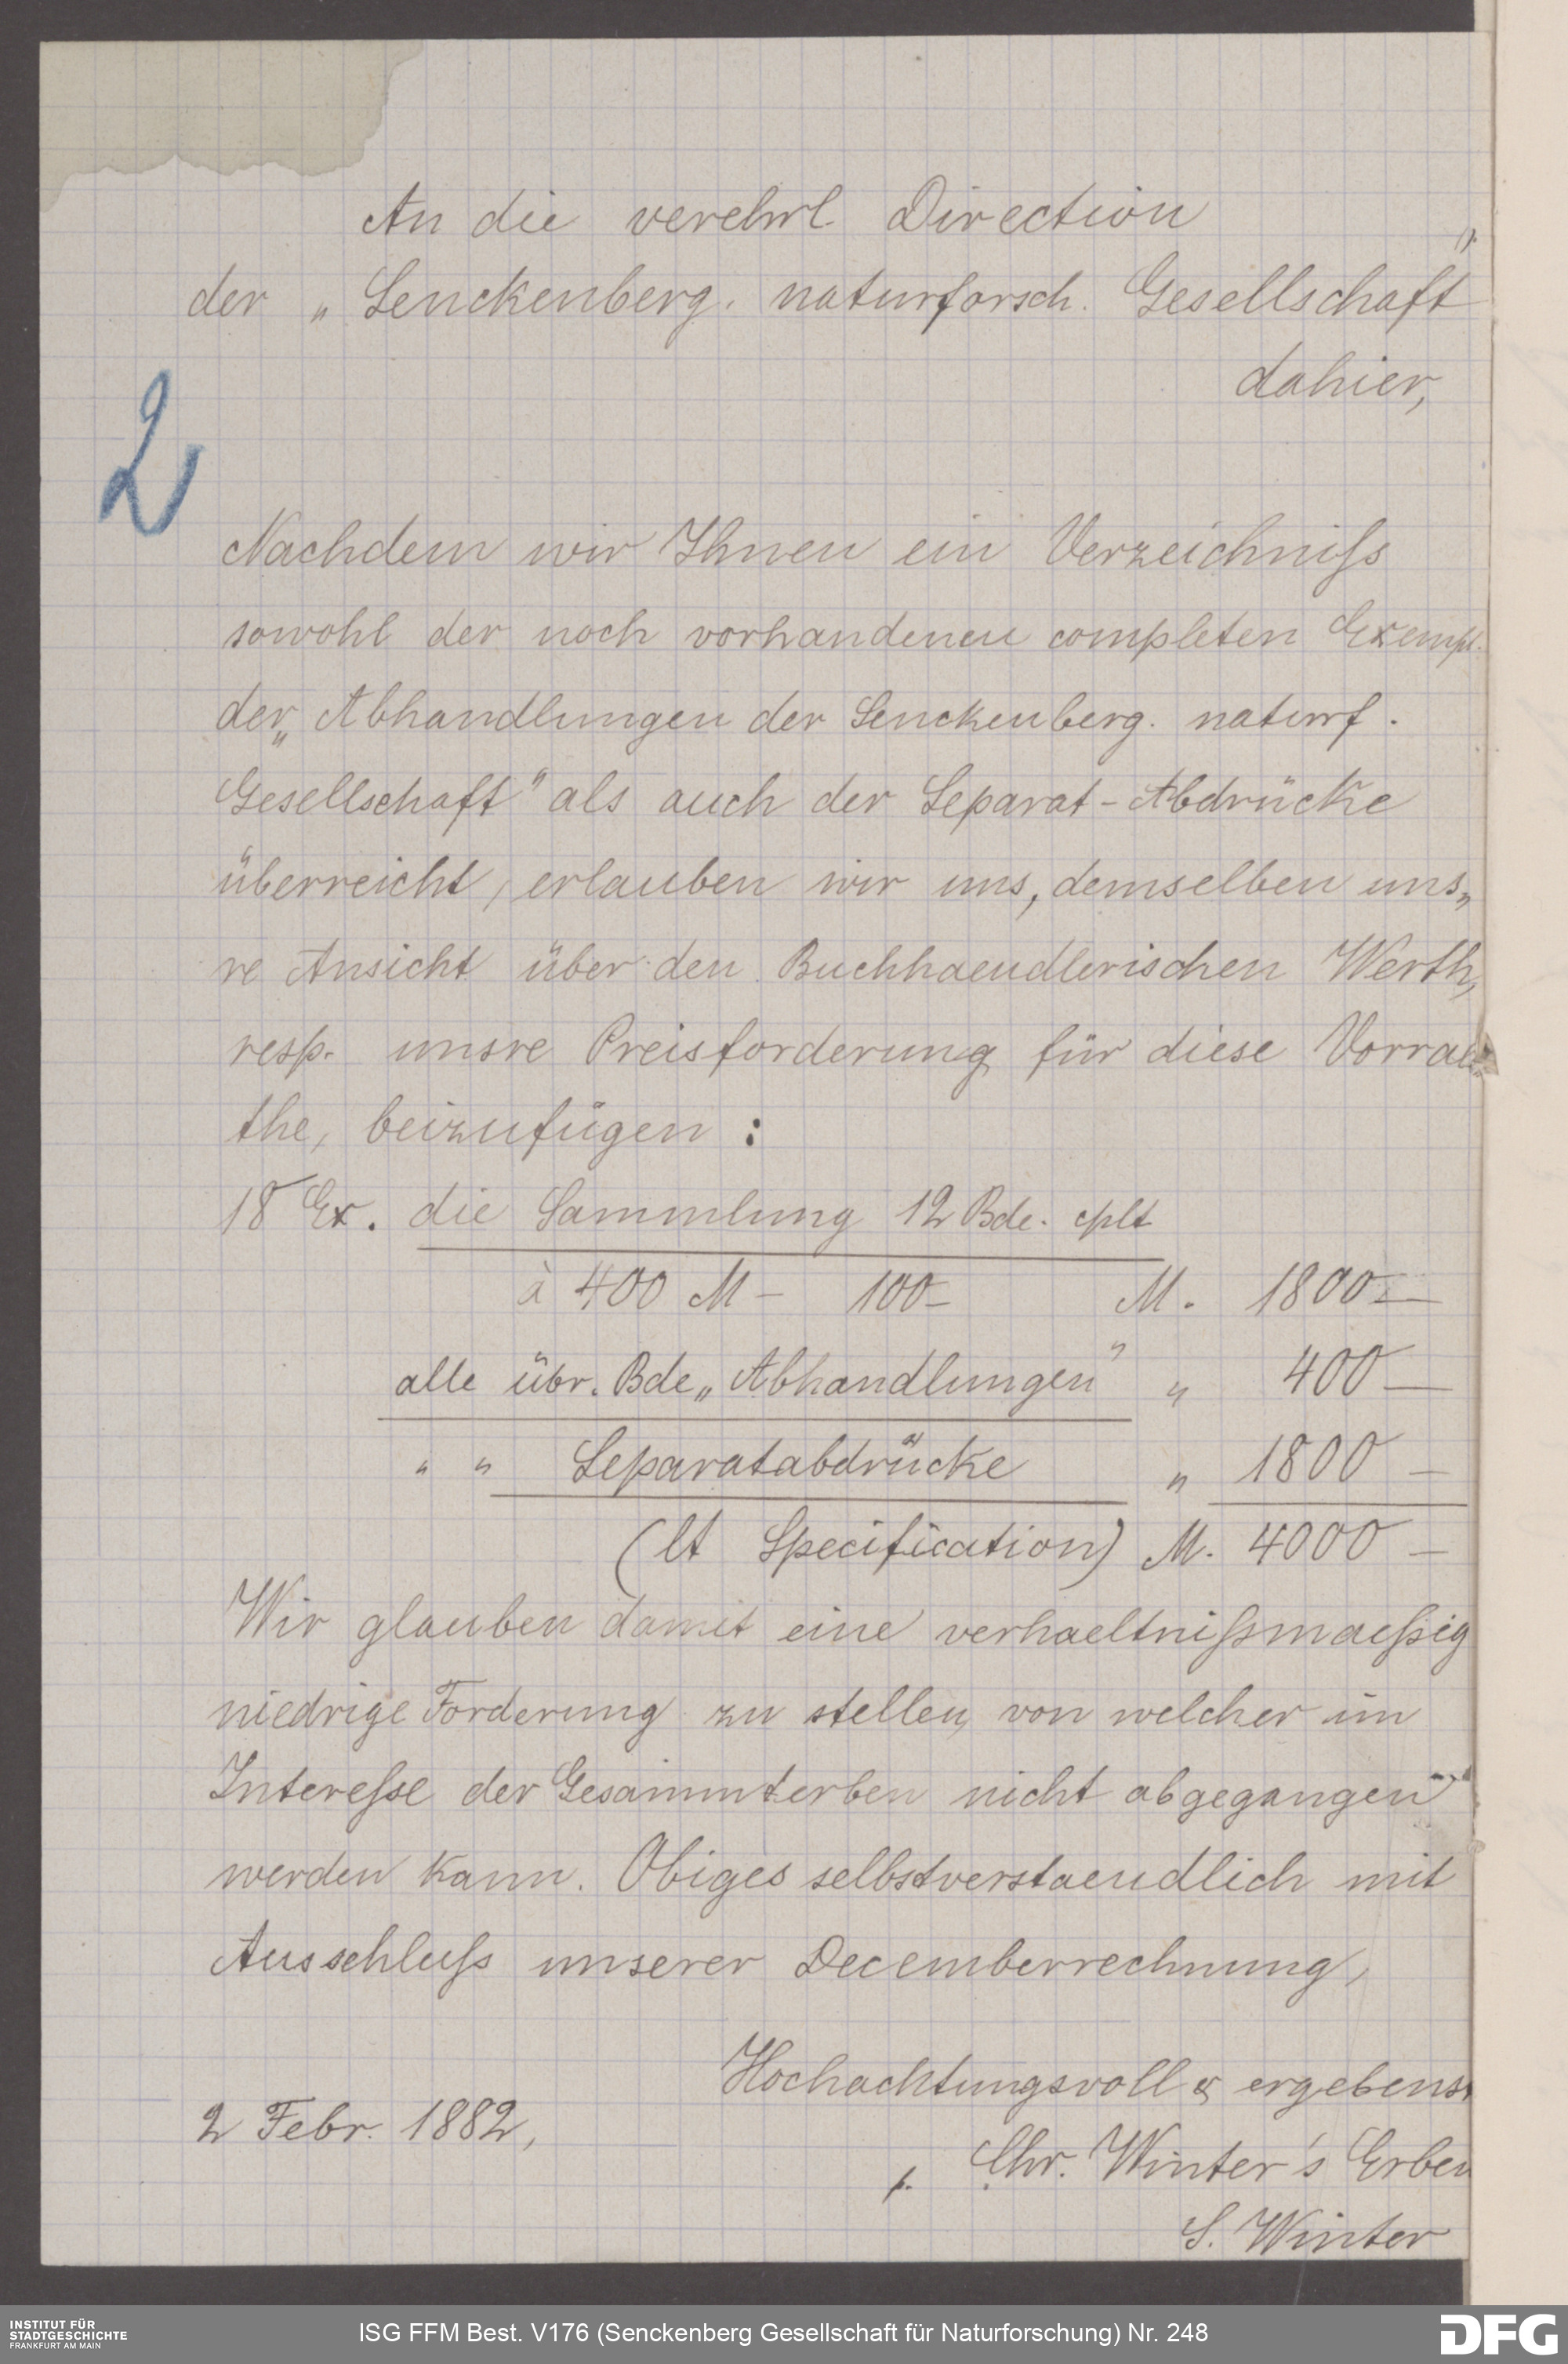 An die verehrl. Direction
der „Senckenberg. naturforsch. Gesellschaft",
dahier,
2
Nachdem wir Ihnen ein Verzeichniſs
sowohl der noch vorhandenen completen Exempl.
der „Abhandlungen der Senckenberg. naturf.
Gesellschaft" als auch der Separat-Abdrücke
überreicht, erlauben wir uns, demselben uns„
re Ansicht über den Buchhaendlerischen Werth,
resp. unsre Preisforderung für diese Vorrae„
the, beizufügen:
18 Ex. die Sammlung 12 Bde. cplt
à 400 M – 100– M. 1800 —
alle übr. Bde „Abhandlungen" „ 400 —
„ „ Separatabdrücke „ 1800 —
(lt Specification) M. 4000 —
Wir glauben damit eine verhaeltniſsmaeſsig
niedrige Forderung zu stellen, von welcher im
Intereſse der Gesammterben nicht abgegangen
werden kann. Obiges selbstverstaendlich mit
Ausschluſs unserer Decemberrechnung,
Hochachtungsvoll & ergebenst
2 Febr. 1882,
p. Chr. Winter's Erben
S. Winter
INSTITUT FÜR
STADTGESCHICHTE
FRANKFURT AM MAIN
ISG FFM Best. V176 (Senckenberg Gesellschaft für Naturforschung) Nr. 248
DFG